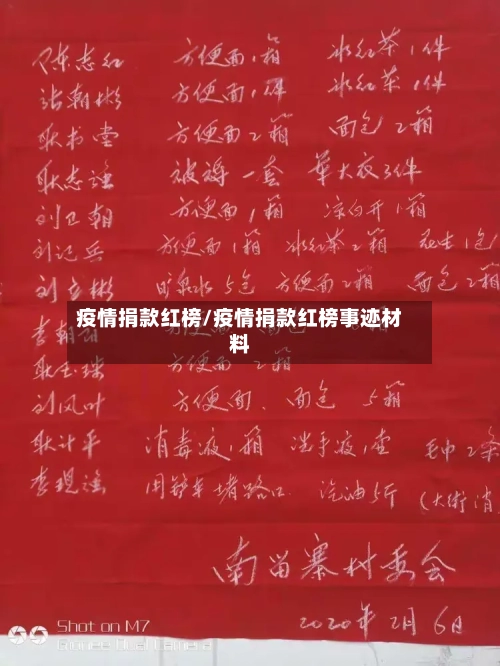 陈志红 方便面1箱 冰红茶1件
张朝彬 方便面1件 冰红茶1件
耿书堂 方便面2箱 面包2箱
耿志强 被褥一套 军大衣3件
刘卫朝 方便面1箱 凉白开1箱
刘记兵 方便面1箱 冰红茶2箱 花生1包
刘立彬 矿泉水5包 方便面2箱 面包2箱
疫情捐款红榜/疫情捐款红榜事迹材
料
李朝
方便面2箱
刘风叶 方便面、面包 5箱
耿计平 消毒液1箱 洗手液1壶 毛巾2条
李现 用铲车堵路口 汽油5斤 (大街消
南留寨村委会
2020年2月6日
Shot on M7